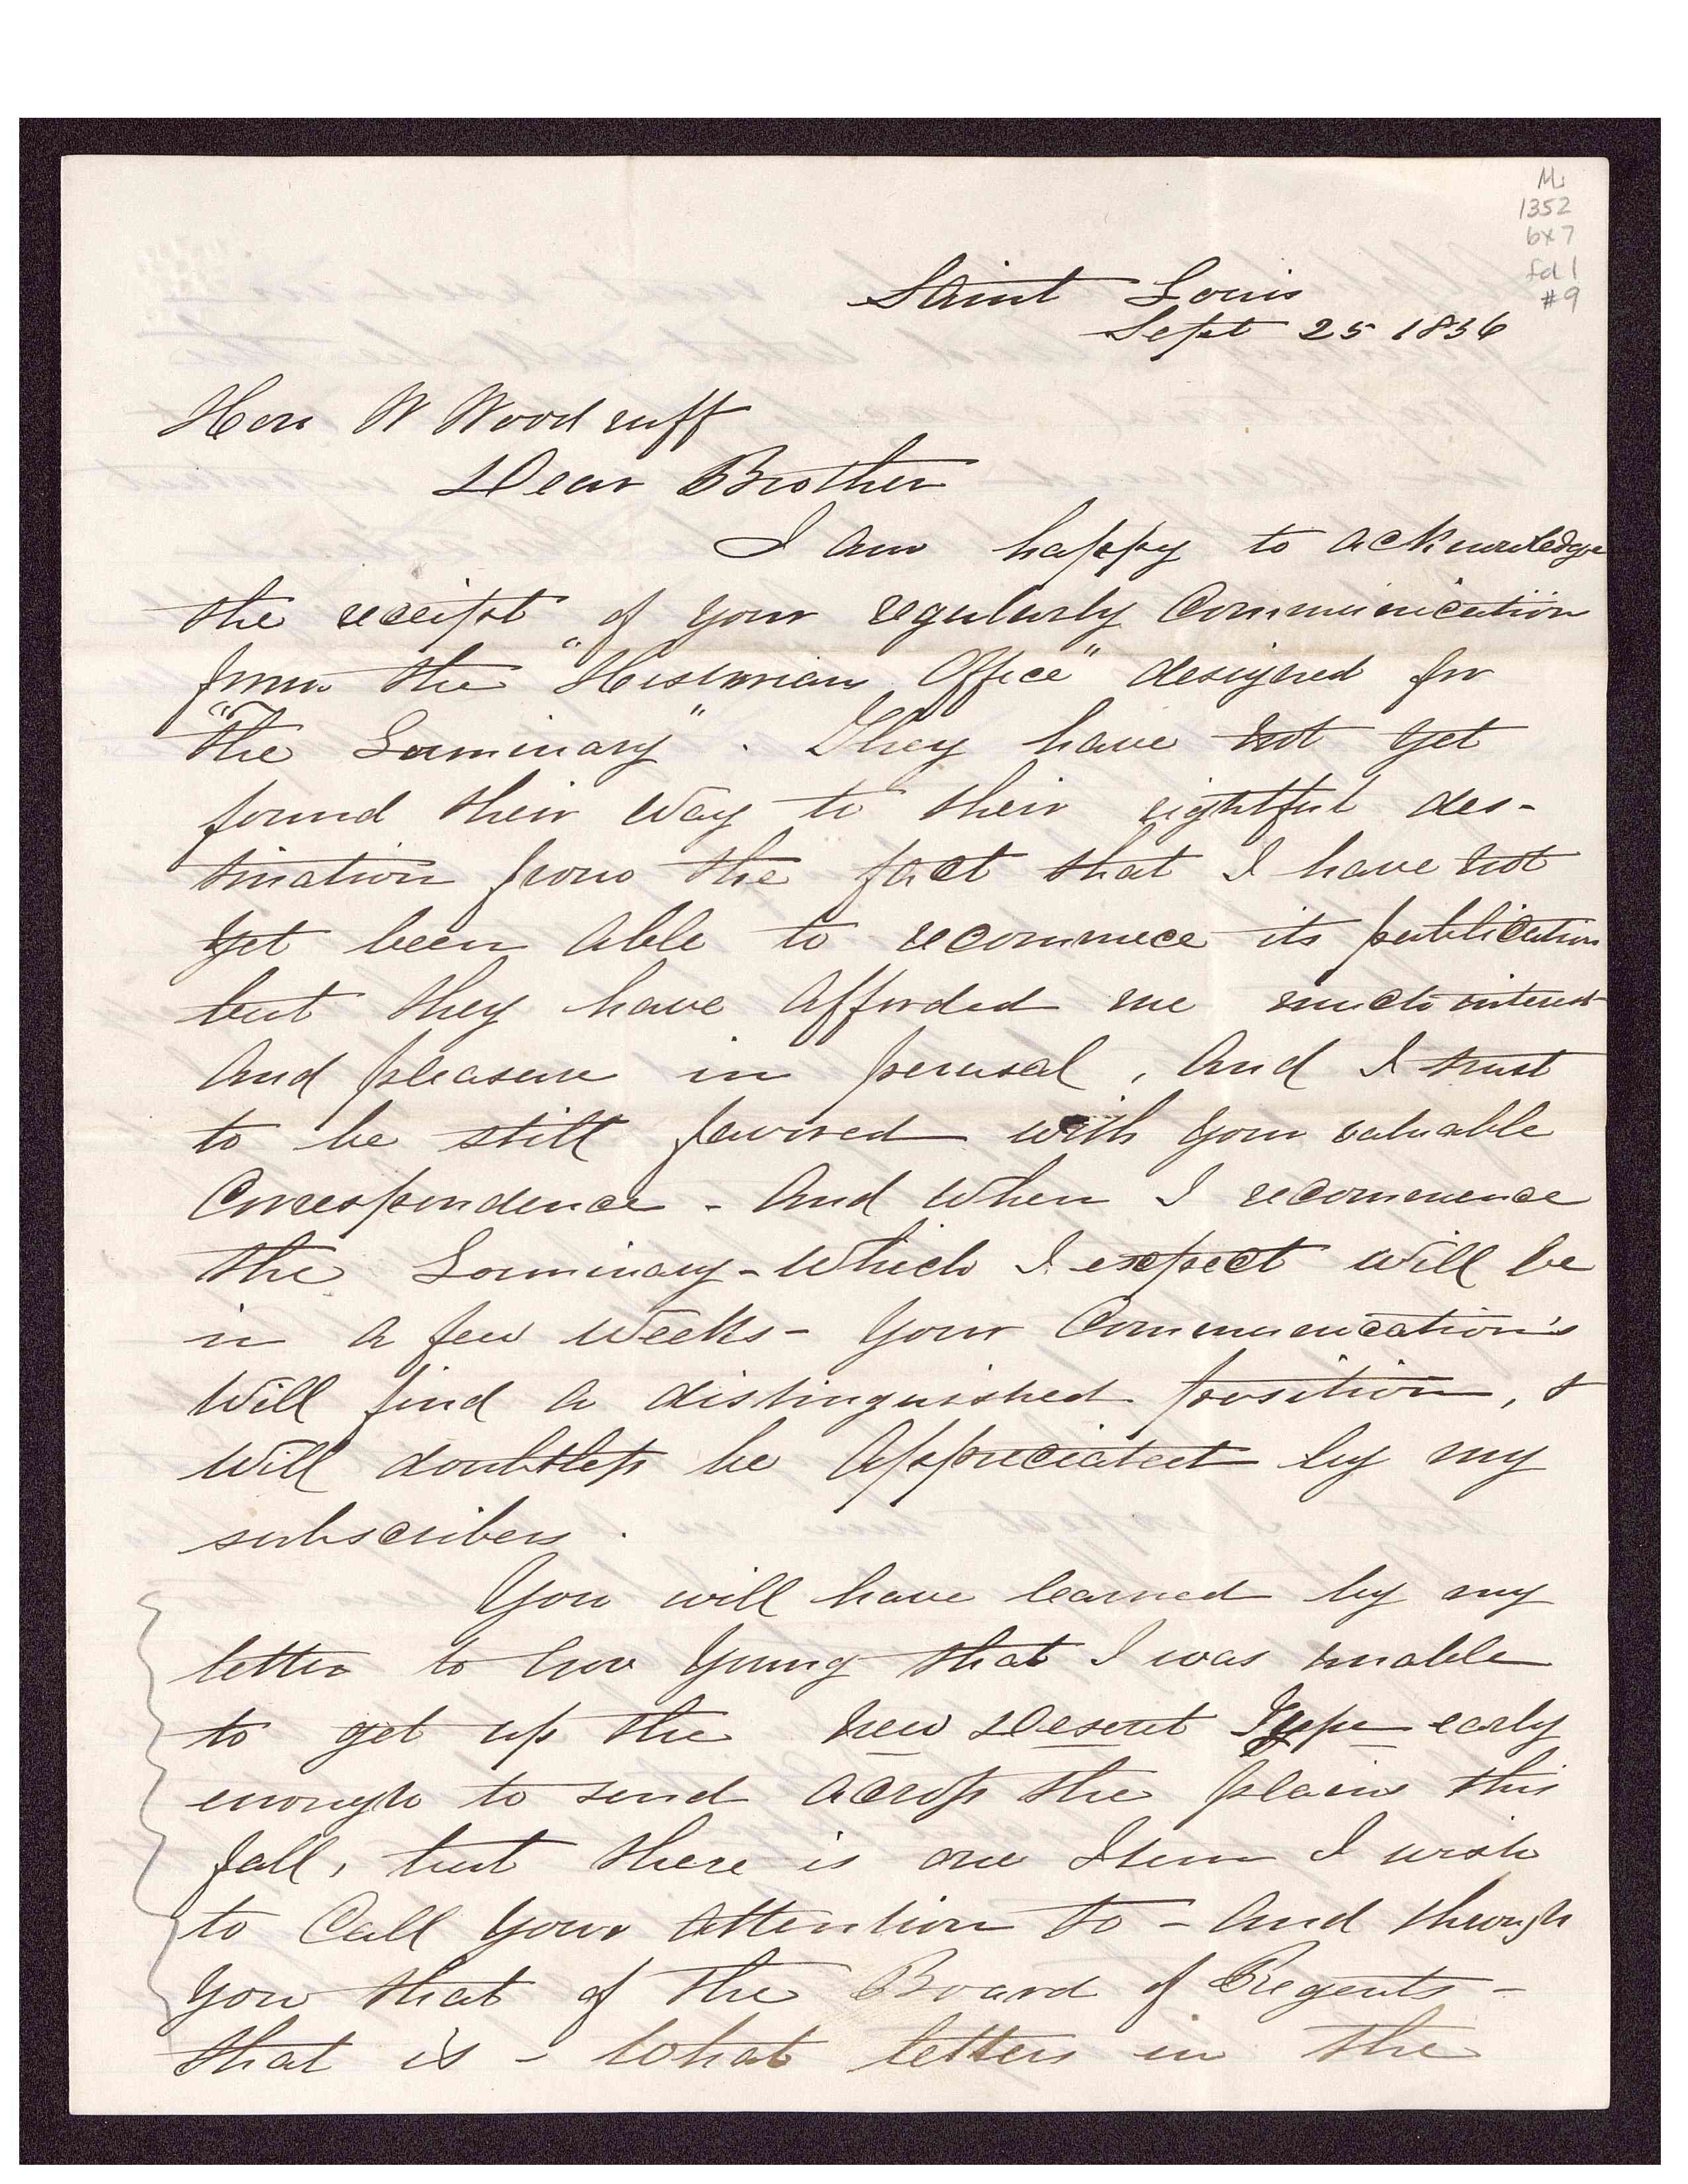 Ms
1352
bx 7
fd 1
#9
Saint Louis
Sept 25 1856
Hon W Woodruff
Dear Brother
I am happy to acknowledge
the receipt of your regularly Communication
from the "Historian Office" designed for
"The Luminary". They have not yet
found their way to their rightful des-
tination from the fact that I have not
yet been able to recommece its publication
but they have afforded me much interest
And pleasure in perusal, And I trust
to be still favored with your valuable
Correspondence - And when I recommence
the Luminary - which I expect will be
in a few weeks - Your Communication's
will find a distinguished position, &
will doubtless be appreciated by my
subscribers.
You will have learned by my
letter to Gov Young that I was unable
to get up the new Deseret Type early
enough to send across the plains this
fall, but there is one Item I wish
to call your attention to - And through
you that of the Board of Regents -
that is - What letters in the